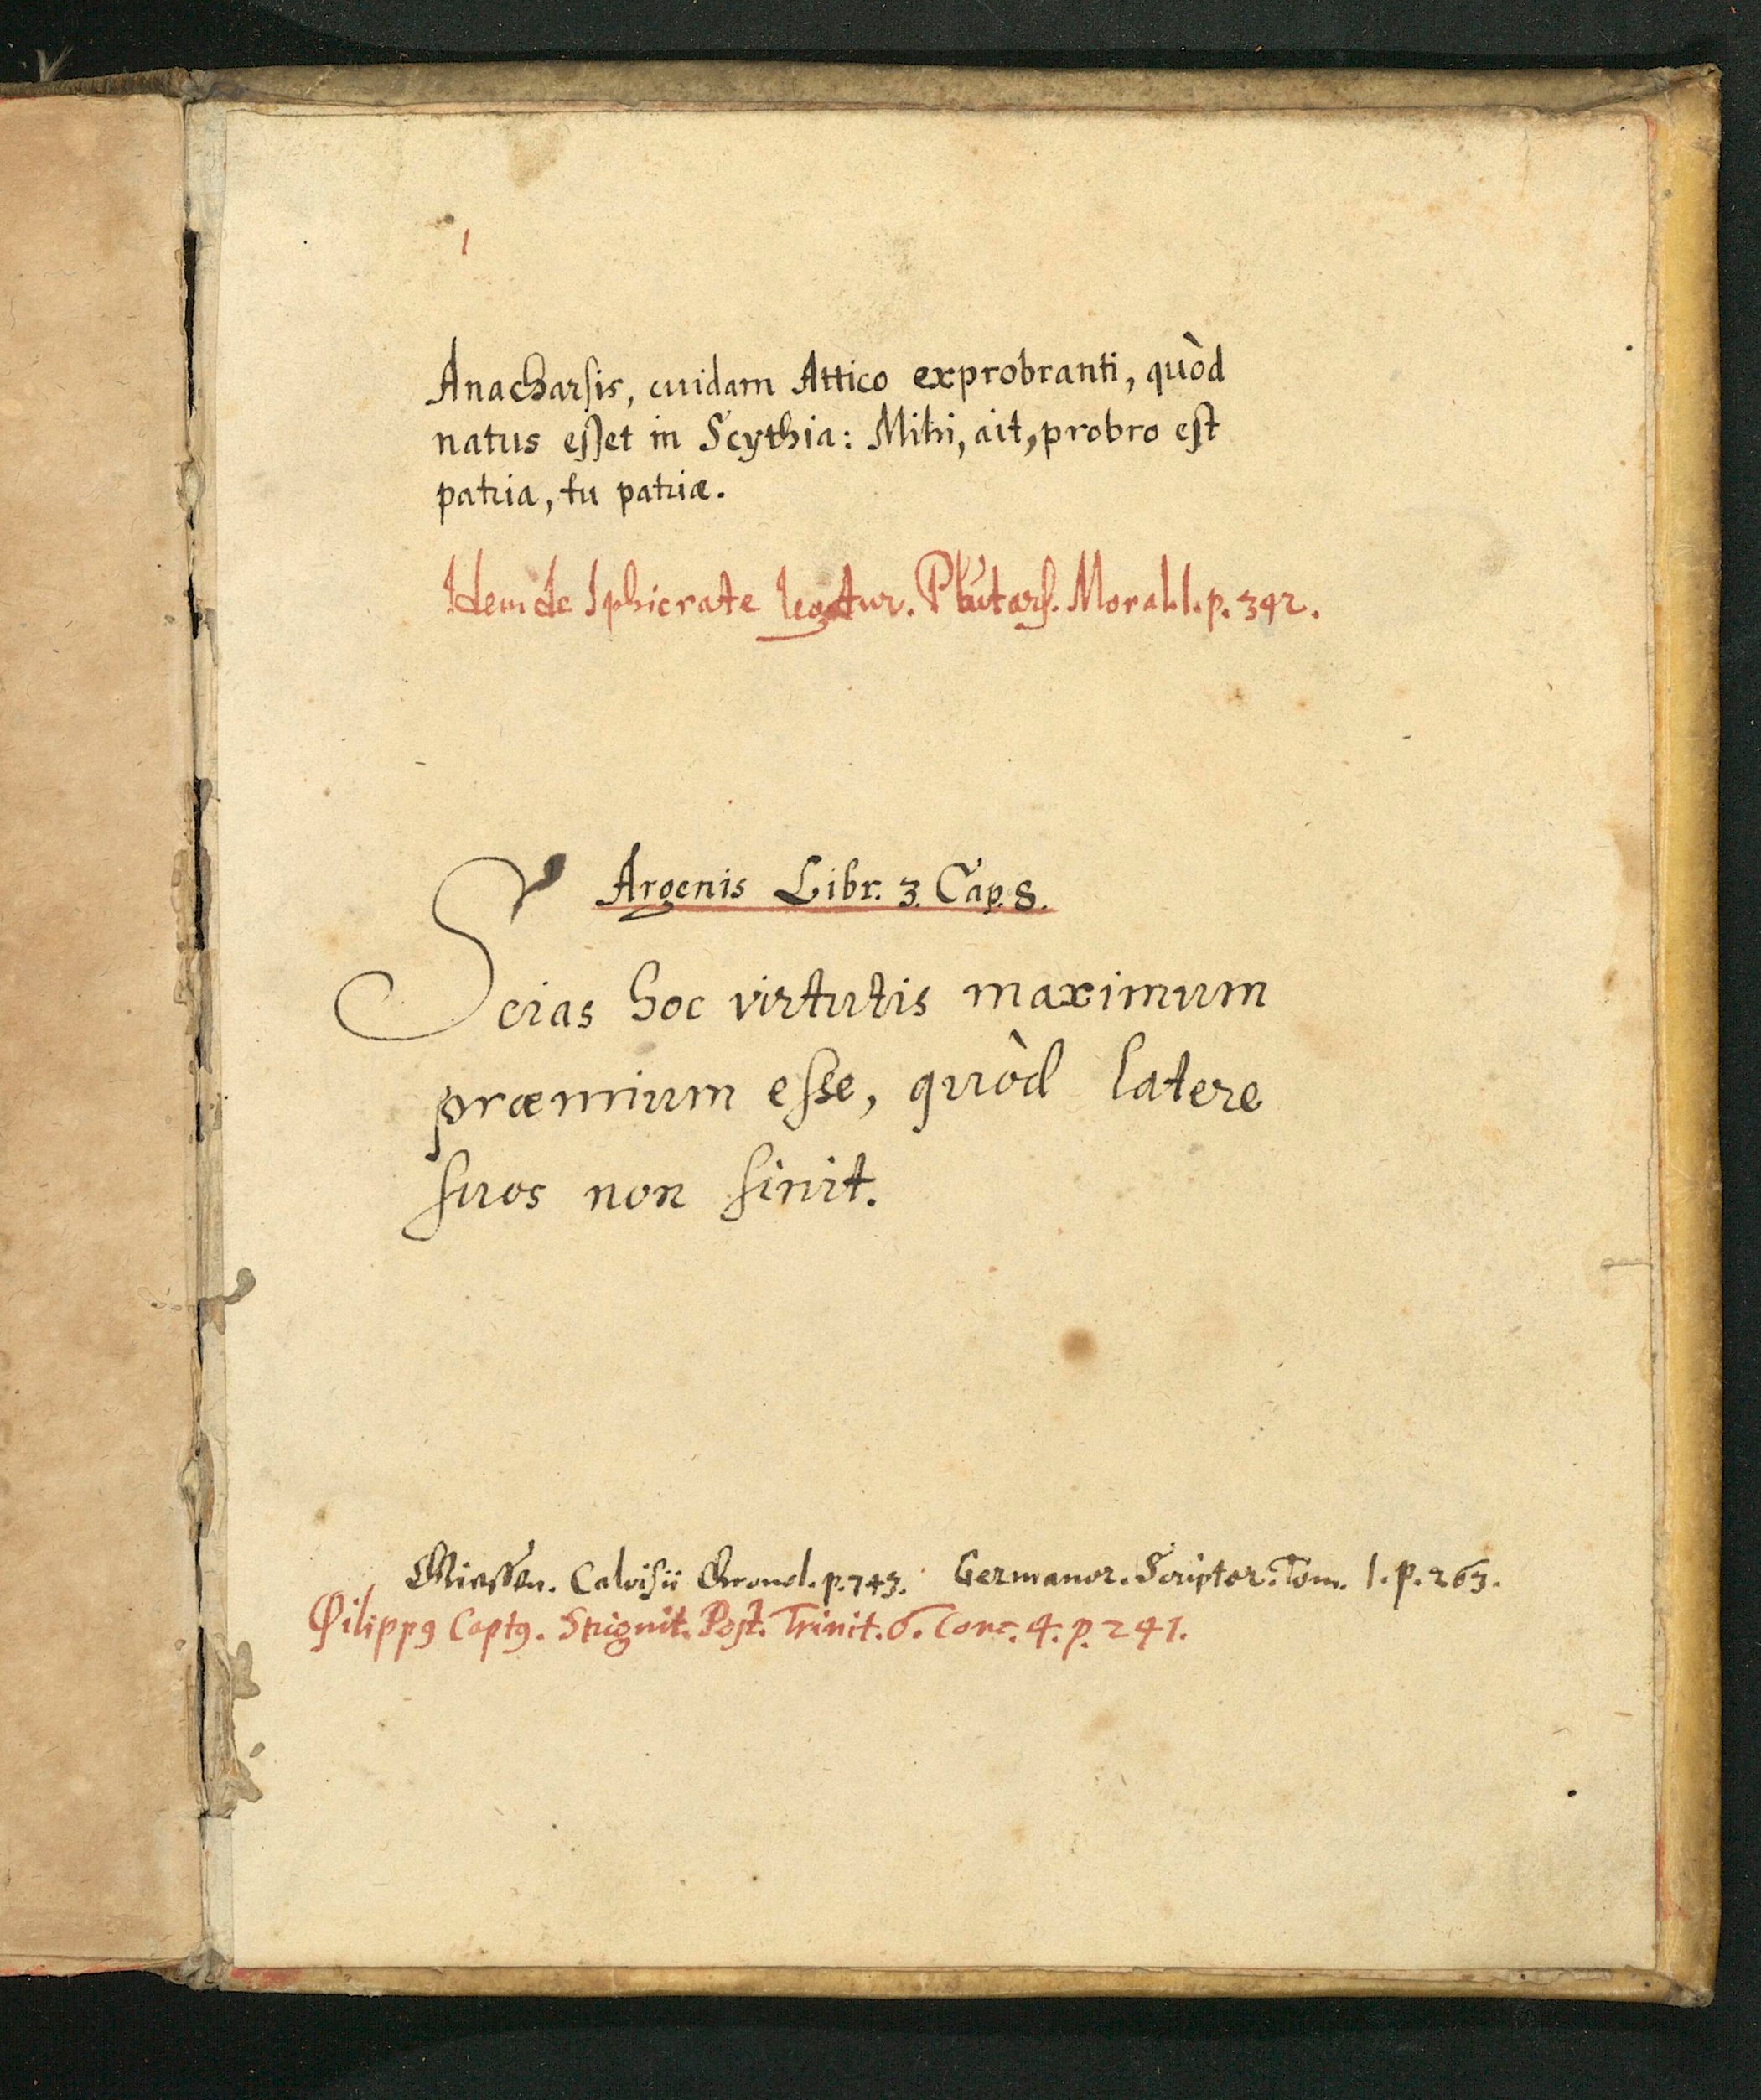 1
Anacharſis, cuidam Attico exprobranti, quòd
natus eſſet in Scythia: Mihi, ait, probro eſt
patria, tu patriæ.
Idem de Iphicrate legitur. Plutarch. Moral. l. p. 342.
Argenis Libr. 3. Cap. 8.
Scias hoc virtutis maximum
præmium eſse, quòd latere
ſuos non ſinit.
Calviſii p. 743. Germanor. Scriptor. Tom. 1. p. 263.
Captꝰ. Post. Trinit. 6. Conc. 4. p. 241.